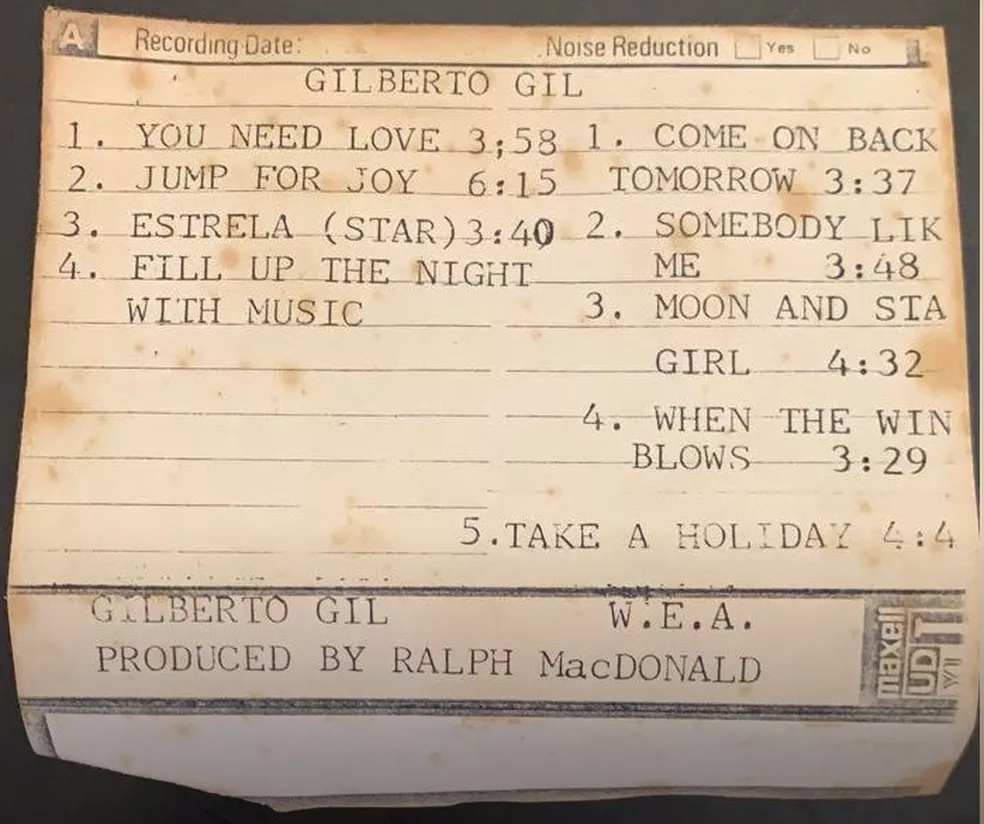 A Recording Date: Noise Reduction Yes No
GILBERTO GIL
1. YOU NEED LOVE 3;58
2. JUMP FOR JOY 6:15
3. ESTRELA (STAR)3:40
4. FILL UP THE NIGHT
WITH MUSIC
1. COME ON BACK
TOMORROW 3:37
2. SOMEBODY LIK
ME 3:48
3. MOON AND STA
GIRL 4:32
4. WHEN THE WIN
BLOWS 3:29
5.TAKE A HOLIDAY 4:4
GILBERTO GIL W.E.A.
PRODUCED BY RALPH MacDONALD
maxell
UD